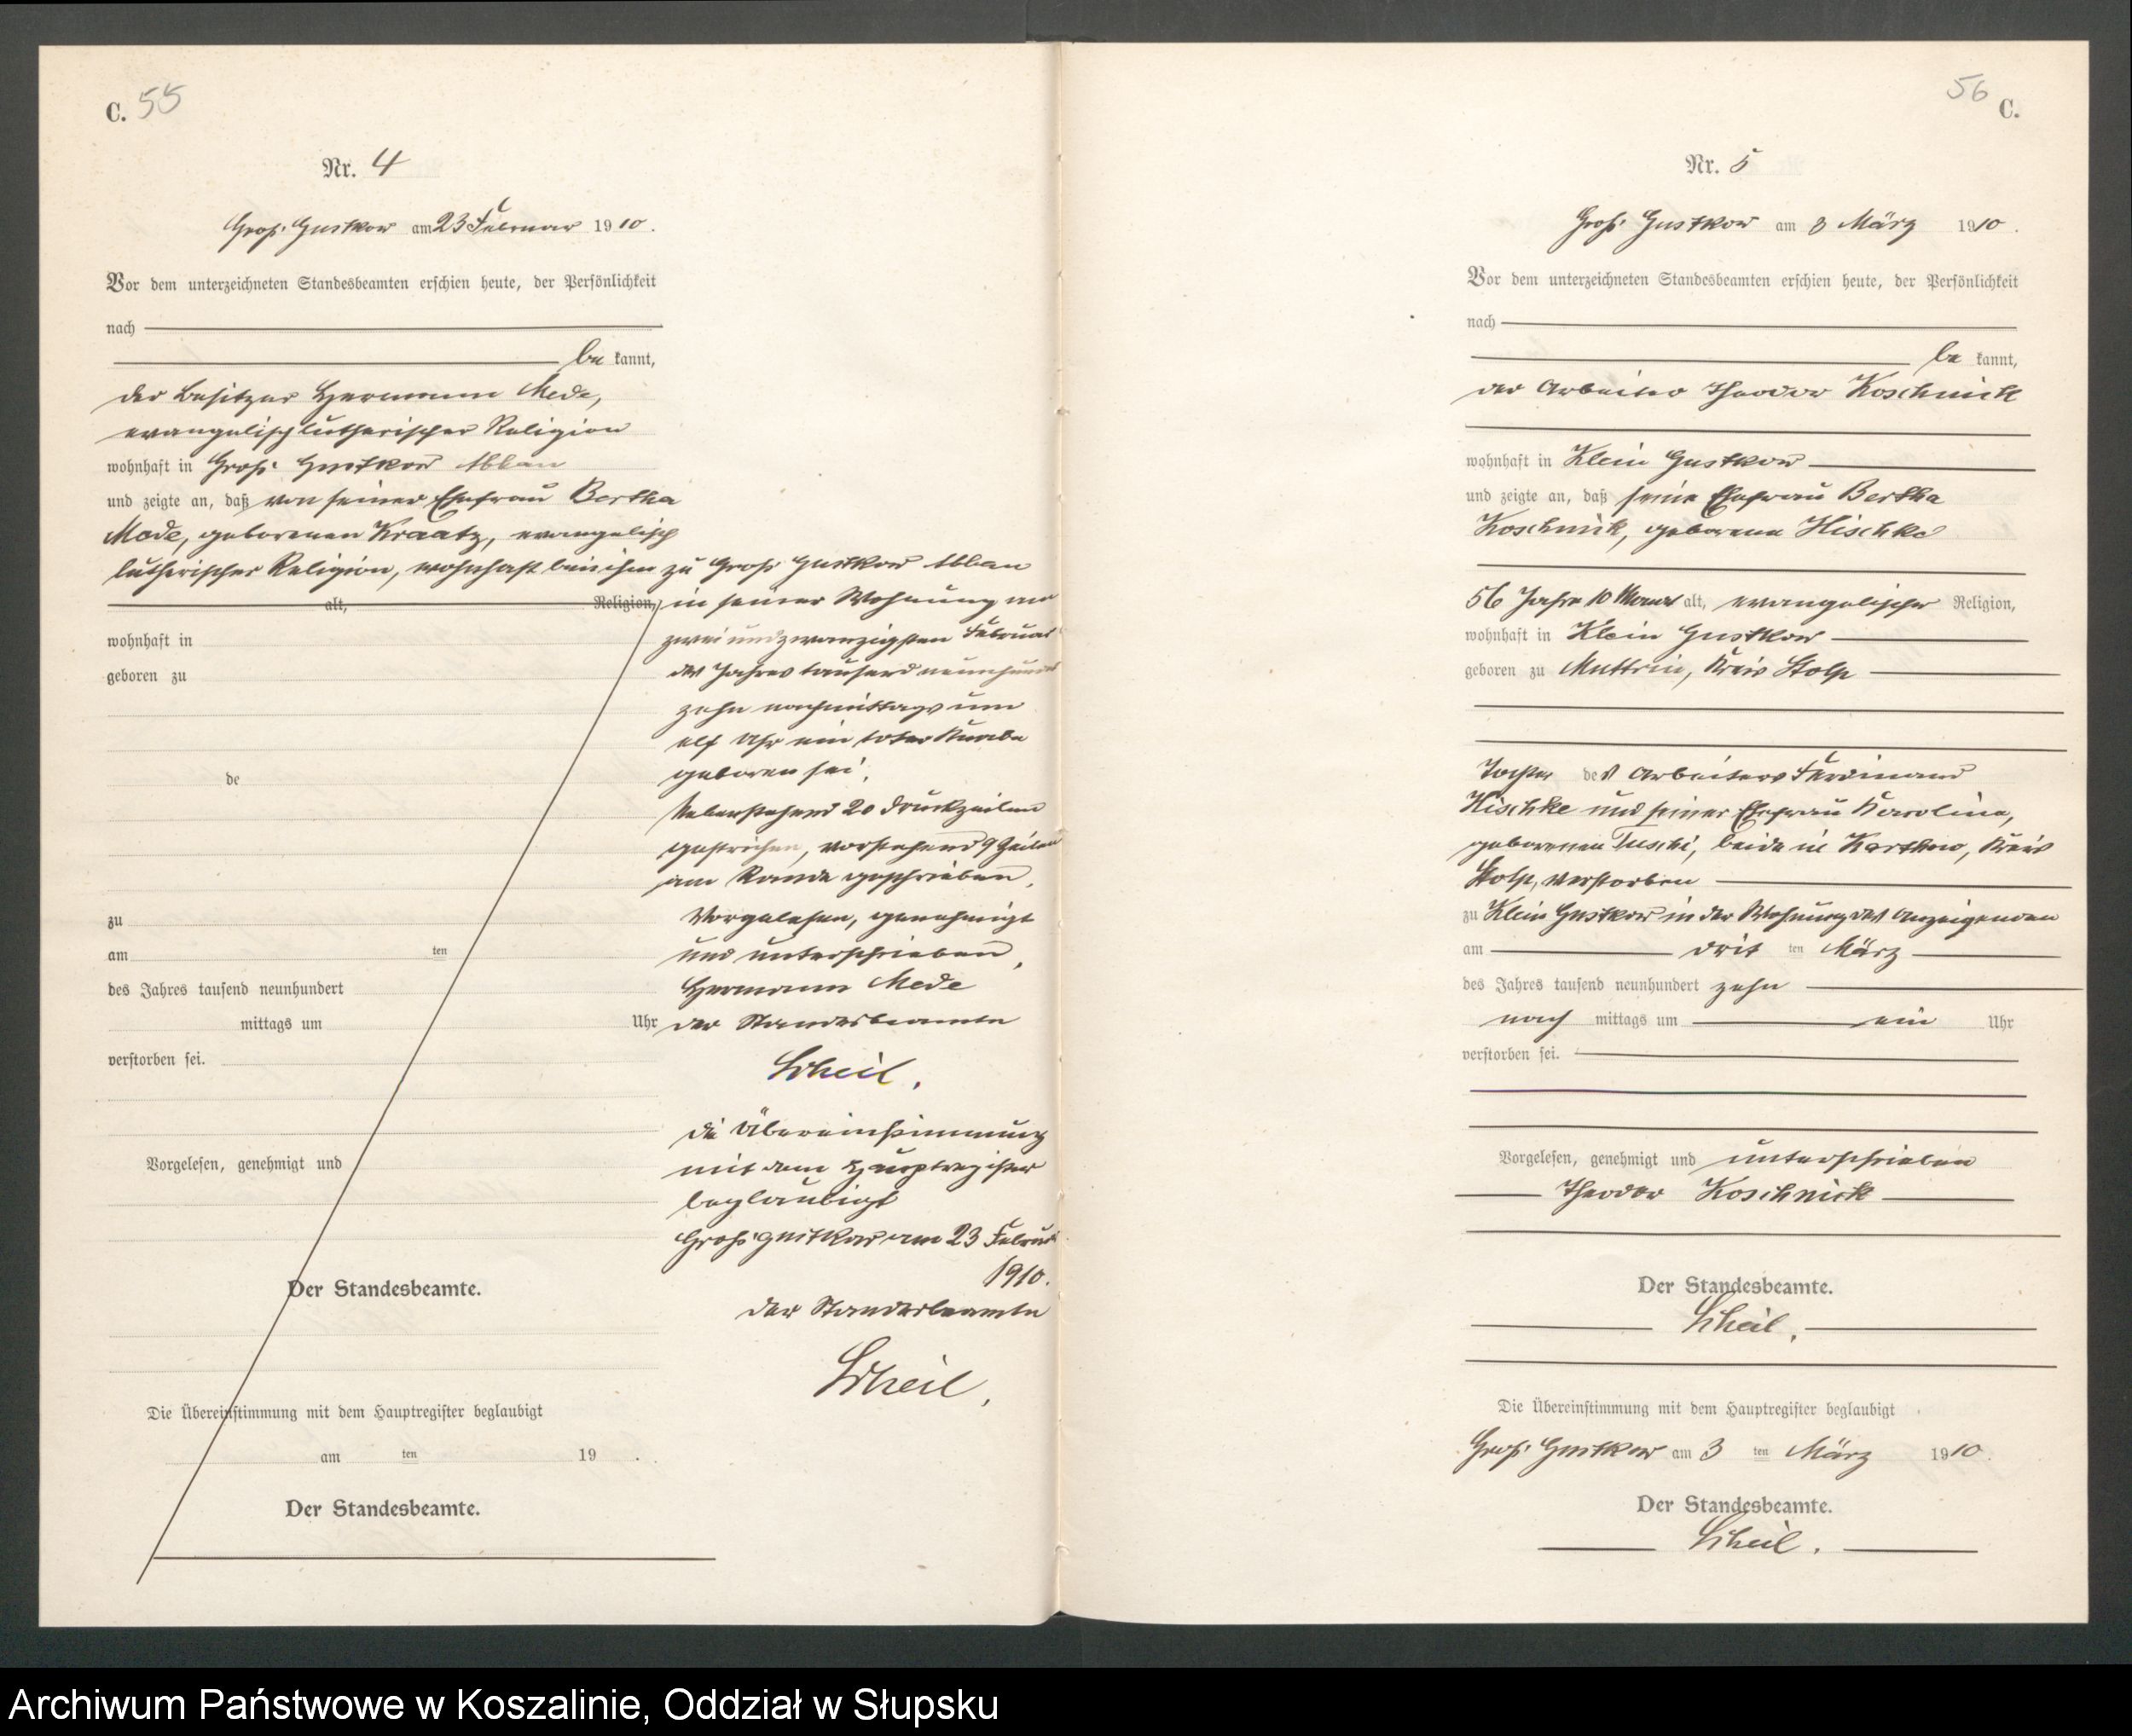 C. 55
Nr. 4
Groß Gustkow am 23 Februar 1910.
Vor dem unterzeichneten Standesbeamten erschien heute, der Persönlichkeit
nach
be kannt,
der Besitzer Hermann Mede,
evangelisch lutherischer Religion
wohnhaft in Groß Gustkow Abbau
und zeigte an, daß von seiner Ehefrau Bertha
Mede, geborenen Kraatz, evangelisch
lutherischer Religion, wohnhaft bei ihm zu Groß Gustkow Abbau
alt, Religion, in seiner Wohnung am
zwei und zwanzigsten Februar
des Jahres tausend neunhundert
zehn nachmittags um
elf Uhr ein toter Knabe
geboren sei.
Nebenstehend 20 Druckzeilen
gestrichen, vorstehend 9 Zeilen
am Rande geschrieben.
Vorgelesen, genehmigt
und unterschrieben,
Hermann Mede
der Standesbeamte
Scheil.
die Übereinstimmung
mit dem Hauptregister
beglaubigt
Groß Gustkow am 23 Februar
1910.
der Standesbeamte
Scheil.
wohnhaft in
geboren zu
de
zu
am ten
des Jahres tausend neunhundert
mittags um Uhr
verstorben sei.
Vorgelesen, genehmigt und
Der Standesbeamte.
Die Übereinstimmung mit dem Hauptregister beglaubigt
am ten 19 .
Der Standesbeamte.
56 C.
Nr. 5
Groß Gustkow am 3 März 1910.
Vor dem unterzeichneten Standesbeamten erschien heute, der Persönlichkeit
nach
be kannt,
der Arbeiter Theodor Koschnick
wohnhaft in Klein Gustkow
und zeigte an, daß seine Ehefrau Bertha
Koschnick, geborene Hischke
56 Jahre 10 Monat alt, evangelischer Religion,
wohnhaft in Klein Gustkow
geboren zu Muttrin, Kreis Stolp
Tochter des Arbeiters Ferdinand
Hischke und seiner Ehefrau Karoline,
geborenen Tuschi, beide in Karthow, Kreis
Stolp, verstorben
zu Klein Gustkow in der Wohnung des Anzeigenden
am drit ten März
des Jahres tausend neunhundert zehn
nach mittags um ein Uhr
verstorben sei.
Vorgelesen, genehmigt und unterschrieben
Theodor Koschnick
Der Standesbeamte.
Scheil.
Die Übereinstimmung mit dem Hauptregister beglaubigt
Groß Gustkow am 3 ten März 1910.
Der Standesbeamte.
Scheil.
Archiwum Państwowe w Koszalinie, Oddział w Słupsku